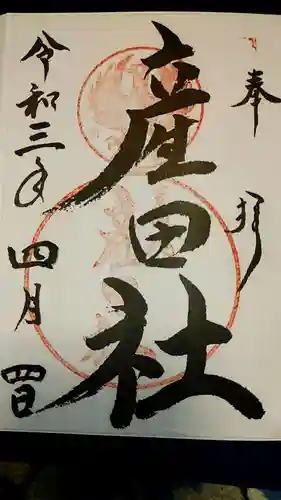 奉拝
産田社
令和三年
四月
四日